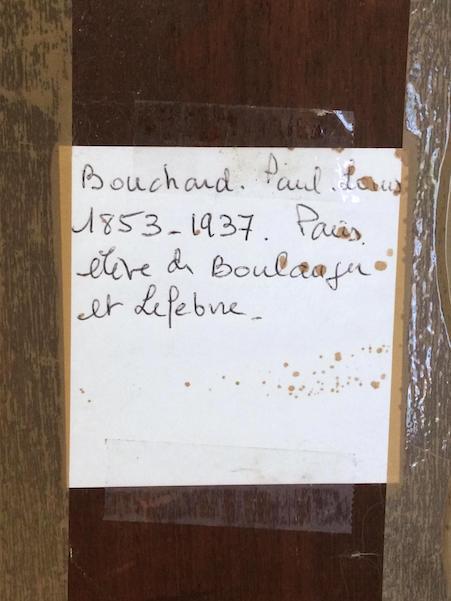 Bouchard. Paul. Louis
1853-1937. Paris.
élève de Boulanger
et Lefebvre_